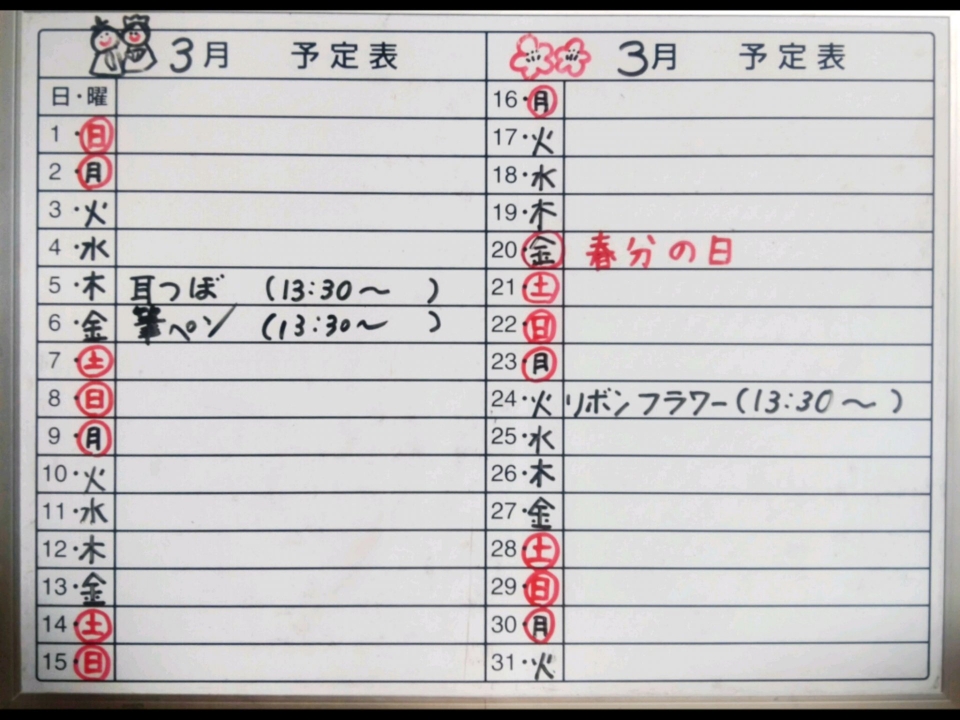 3月 予定表
日・曜
1・日
2・月
3・火
4・水
5・木 耳つぼ (13:30〜 )
6・金 筆ペン (13:30〜 )
7・土
8・日
9・月
10・火
11・水
12・木
13・金
14・土
15・日
3月 予定表
16・月
17・火
18・水
19・木
20・金 春分の日
21・土
22・日
23・月
24・火 リボンフラワー(13:30〜 )
25・水
26・木
27・金
28・土
29・日
30・月
31・火